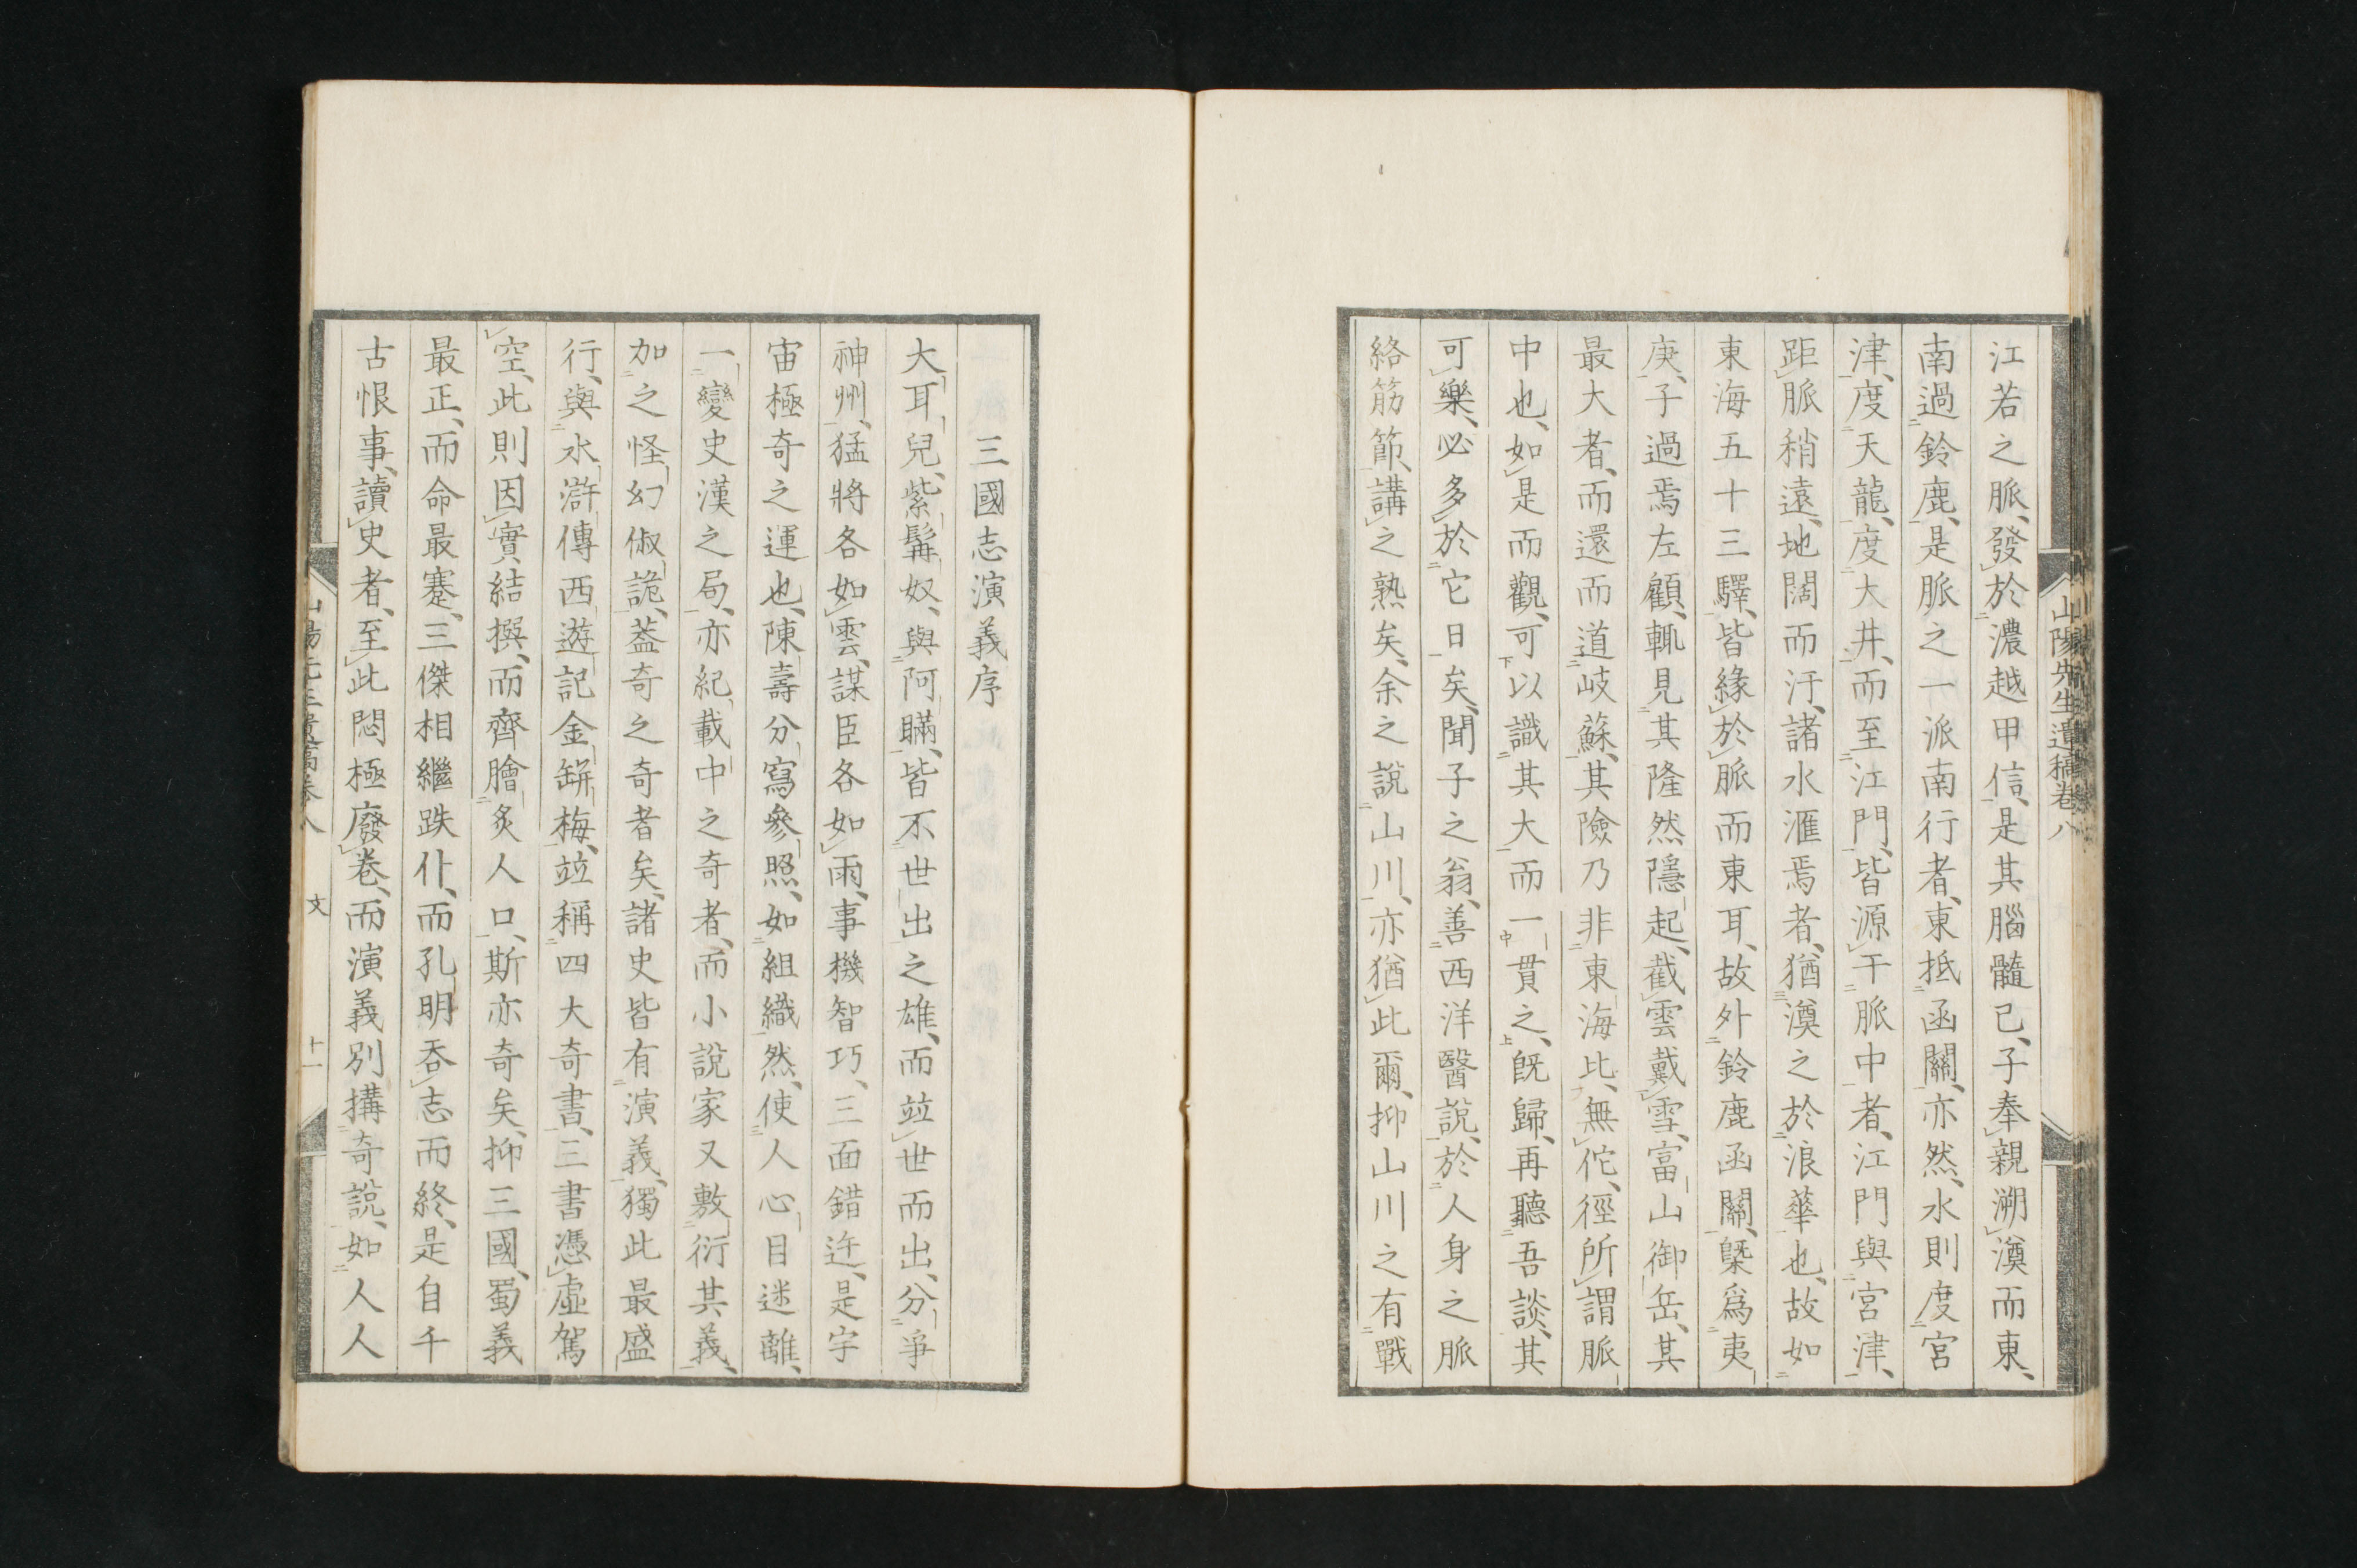 山陽先生遺稿卷八
江若之脈、發於濃越甲信、是其腦髓已、子奉親溯澳而東、
南過鈴鹿、是脈之一派南行者、東抵函關、亦然、水則度宮
津、度天龍、度大井、而至江門、皆源干脈中者、江門與宮津、
距脈稍遠、地闊而汙、諸水滙焉者、猶澳之於浪華也、故如
東海五十三驛、皆緣於脈而東耳、故外鈴鹿函關、槩爲夷
庚、子過焉左顧、輒見其隆然隱起、截雲戴雪、富山御岳、其
最大者、而還而道岐蘇、其險乃非東海比、無佗、徑所謂脈
中也、如是而觀、可以識其大而一貫之、既歸、再聽吾談、其
可樂、必多於它日矣、聞子之翁、善西洋醫說、於人身之脈
絡筋節、講之熟矣、余之說山川、亦猶此爾、抑山川之有戰
三國志演義序
大耳兒、紫髯奴、與阿瞞、皆不世出之雄、而竝世而出、分爭
神州、猛將各如雲、謀臣各如雨、事機智巧、三面錯迕、是宇
宙極奇之運也、陳壽分寫參照、如組織然、使人心目迷離、
一變史漢之局、亦紀載中之奇者、而小說家又敷衍其義、
加之怪幻俶詭、葢奇之奇者矣、諸史皆有演義、獨此最盛
行、與水滸傳西遊記金缾梅、竝稱四大奇書、三書憑虛駕
空、此則因實結撰、而齊膾炙人口、斯亦奇矣、抑三國、蜀義
最正、而命最蹇、三傑相繼跌仆、而孔明吞志而終、是自千
古恨事、讀史者、至此悶極廢卷、而演義別搆奇說、如人人
文
十一